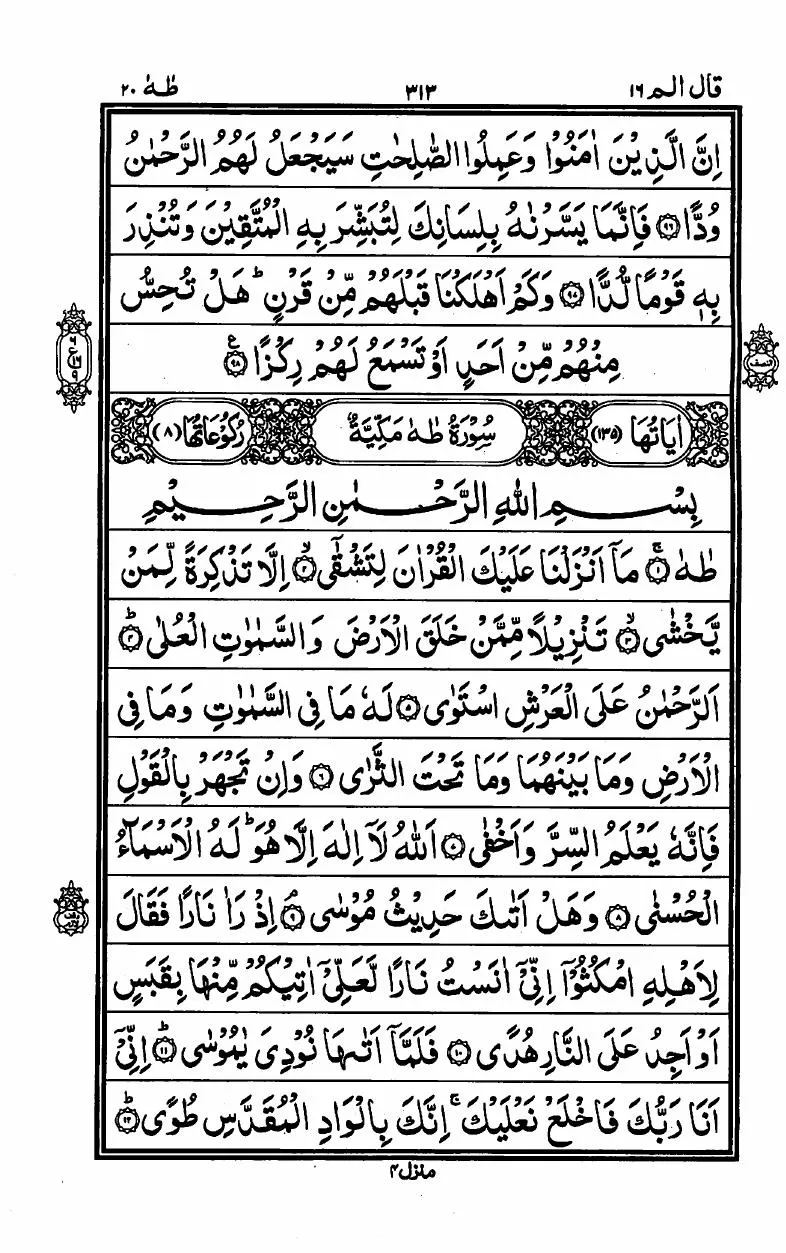 قال الم ١٦ ٣١٣ طٰهٰ ٢٠
اِنَّ الَّذِیْنَ اٰمَنُوْا وَعَمِلُوا الصّٰلِحٰتِ سَیَجْعَلُ لَهُمُ الرَّحْمٰنُ
وُدًّا ۹۶ فَاِنَّمَا یَسَّرْنٰهُ بِلِسَانِكَ لِتُبَشِّرَ بِهِ الْمُتَّقِیْنَ وَتُنْذِرَ
بِهٖ قَوْمًا لُّدًّا ۹۷ وَكَمْ اَهْلَكْنَا قَبْلَهُمْ مِّنْ قَرْنٍ ؕ هَلْ تُحِسُّ
مِنْهُمْ مِّنْ اَحَدٍ اَوْ تَسْمَعُ لَهُمْ رِكْزًا ۹۸
النصف
اٰیَاتُهَا (١٣٥) سُوْرَةُ طٰهٰ مَكِّیَّةٌ رُكُوْعَاتُهَا (٨)
بِسْمِ اللّٰهِ الرَّحْمٰنِ الرَّحِیْمِ
طٰهٰ ۱ ۚ مَاۤ اَنْزَلْنَا عَلَیْكَ الْقُرْاٰنَ لِتَشْقٰۤی ۲ ۙ اِلَّا تَذْكِرَةً لِّمَنْ
یَّخْشٰی ۳ ۙ تَنْزِیْلًا مِّمَّنْ خَلَقَ الْاَرْضَ وَالسَّمٰوٰتِ الْعُلٰی ۴ ؕ
اَلرَّحْمٰنُ عَلَی الْعَرْشِ اسْتَوٰی ۵ لَهٗ مَا فِی السَّمٰوٰتِ وَمَا فِی
الْاَرْضِ وَمَا بَیْنَهُمَا وَمَا تَحْتَ الثَّرٰی ۶ وَاِنْ تَجْهَرْ بِالْقَوْلِ
فَاِنَّهٗ یَعْلَمُ السِّرَّ وَاَخْفٰی ۷ اَللّٰهُ لَاۤ اِلٰهَ اِلَّا هُوَ ؕ لَهُ الْاَسْمَآءُ
الْحُسْنٰی ۸ وَهَلْ اَتٰىكَ حَدِیْثُ مُوْسٰی ۹ ۘ اِذْ رَاٰ نَارًا فَقَالَ
لِاَهْلِهِ امْكُثُوْۤا اِنِّیْۤ اٰنَسْتُ نَارًا لَّعَلِّیْۤ اٰتِیْكُمْ مِّنْهَا بِقَبَسٍ
اَوْ اَجِدُ عَلَی النَّارِ هُدًی ۱۰ فَلَمَّاۤ اَتٰىهَا نُوْدِیَ یٰمُوْسٰی ۱۱ ؕ اِنِّیْۤ
اَنَا رَبُّكَ فَاخْلَعْ نَعْلَیْكَ ۚ اِنَّكَ بِالْوَادِ الْمُقَدَّسِ طُوًی ۱۲ ؕ
منزل ۴